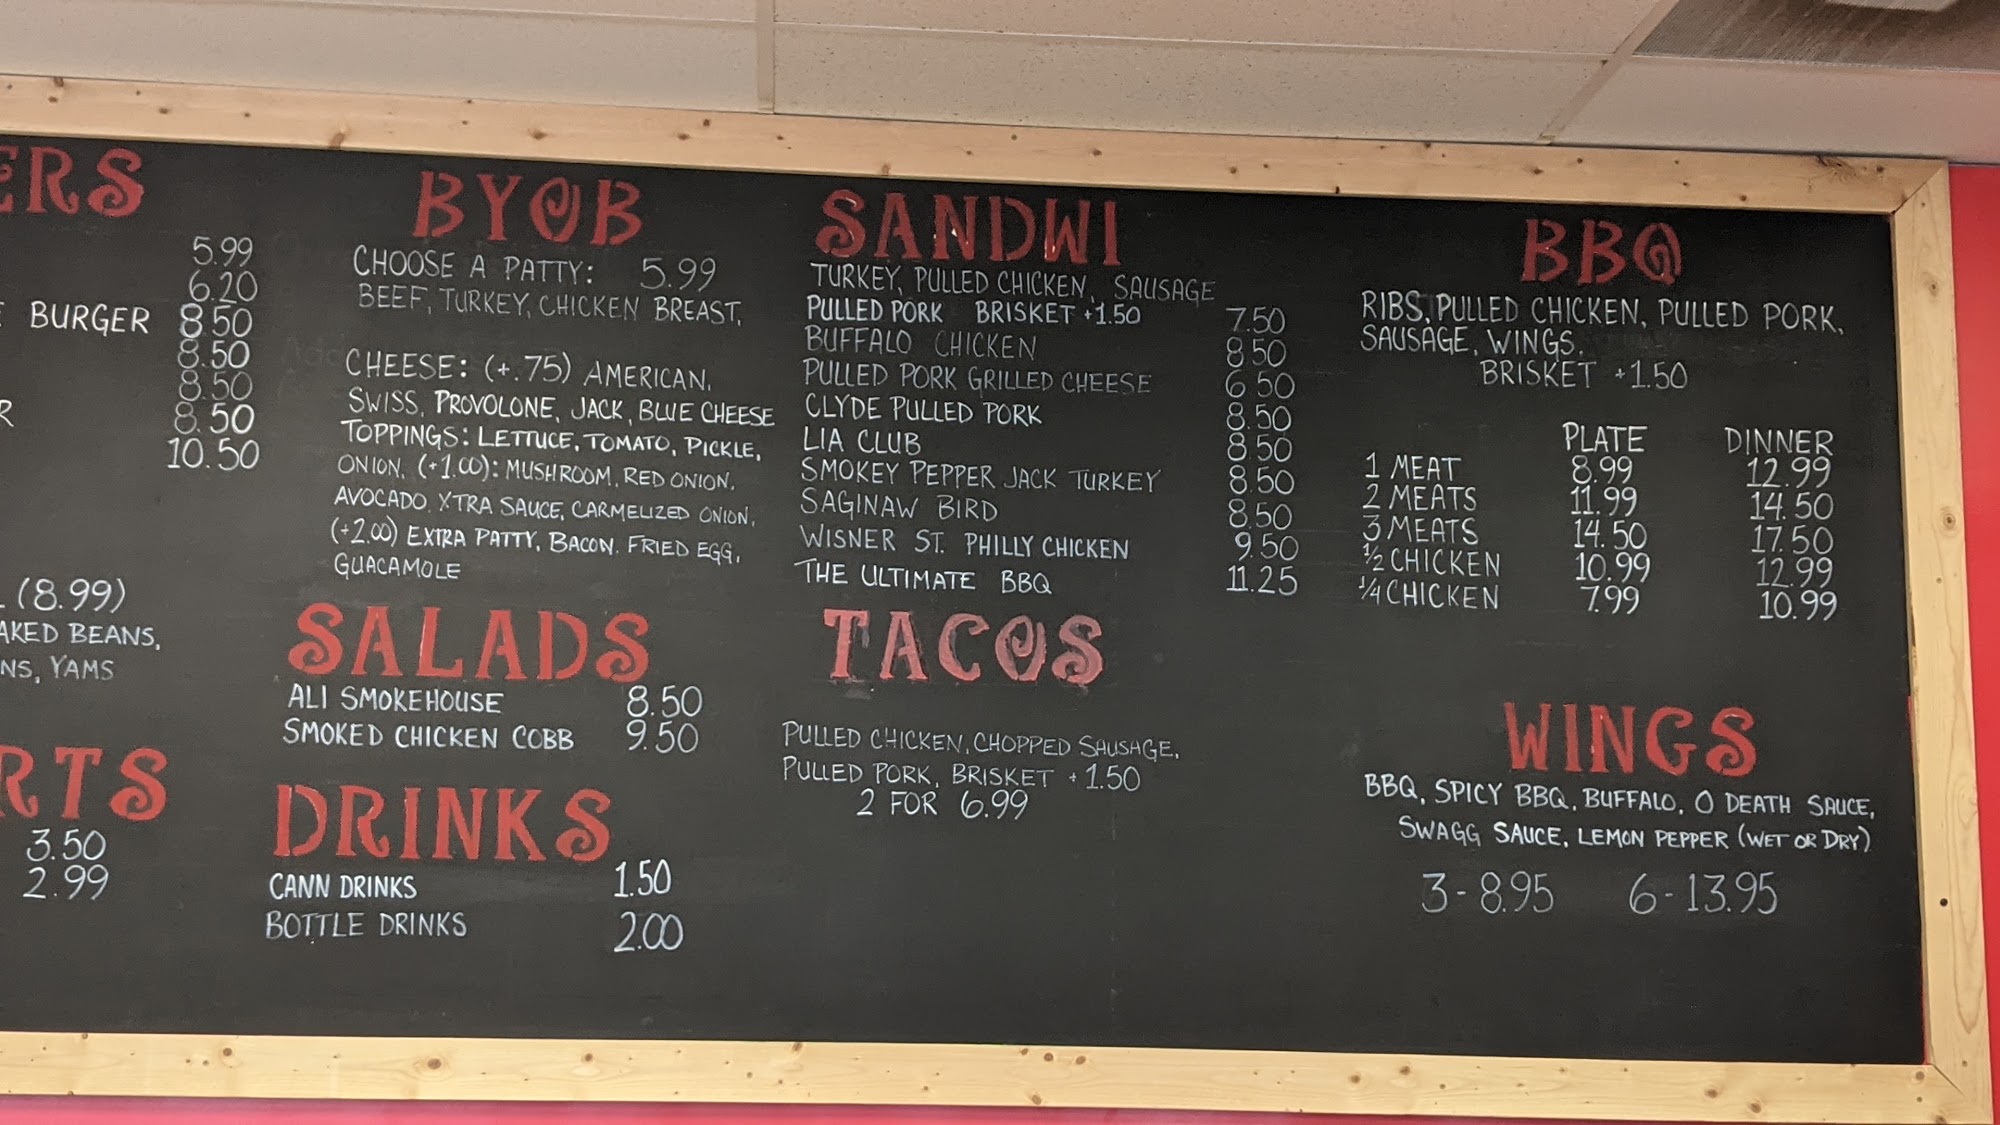 ERS
5.99
6.20
BURGER 8.50
8.50
8.50
R 8.50
10.50
(8.99)
AKED BEANS,
NS, YAMS
RTS
3.50
2.99
BYOB
CHOOSE A PATTY: 5.99
BEEF, TURKEY, CHICKEN BREAST,
CHEESE: (+.75) AMERICAN,
SWISS, PROVOLONE, JACK, BLUE CHEESE
TOPPINGS: LETTUCE, TOMATO, PICKLE,
ONION, (+1.00): MUSHROOM, RED ONION,
AVOCADO, XTRA SAUCE, CARMELIZED ONION,
(+2.00) EXTRA PATTY, BACON, FRIED EGG,
GUACAMOLE
SALADS
ALI SMOKEHOUSE 8.50
SMOKED CHICKEN COBB 9.50
DRINKS
CANN DRINKS 1.50
BOTTLE DRINKS 2.00
SANDWI
TURKEY, PULLED CHICKEN, SAUSAGE
PULLED PORK BRISKET +1.50 7.50
BUFFALO CHICKEN 8.50
PULLED PORK GRILLED CHEESE 6.50
CLYDE PULLED PORK 8.50
LIA CLUB 8.50
SMOKEY PEPPER JACK TURKEY 8.50
SAGINAW BIRD 8.50
WISNER ST. PHILLY CHICKEN 9.50
THE ULTIMATE BBQ 11.25
TACOS
PULLED CHICKEN, CHOPPED SAUSAGE,
PULLED PORK, BRISKET +1.50
2 FOR 6.99
BBQ
RIBS, PULLED CHICKEN, PULLED PORK,
SAUSAGE, WINGS.
BRISKET +1.50
PLATE DINNER
1 MEAT 8.99 12.99
2 MEATS 11.99 14.50
3 MEATS 14.50 17.50
1/2 CHICKEN 10.99 12.99
1/4 CHICKEN 7.99 10.99
WINGS
BBQ, SPICY BBQ, BUFFALO, O DEATH SAUCE,
SWAGG SAUCE, LEMON PEPPER (WET OR DRY)
3 - 8.95 6 - 13.95